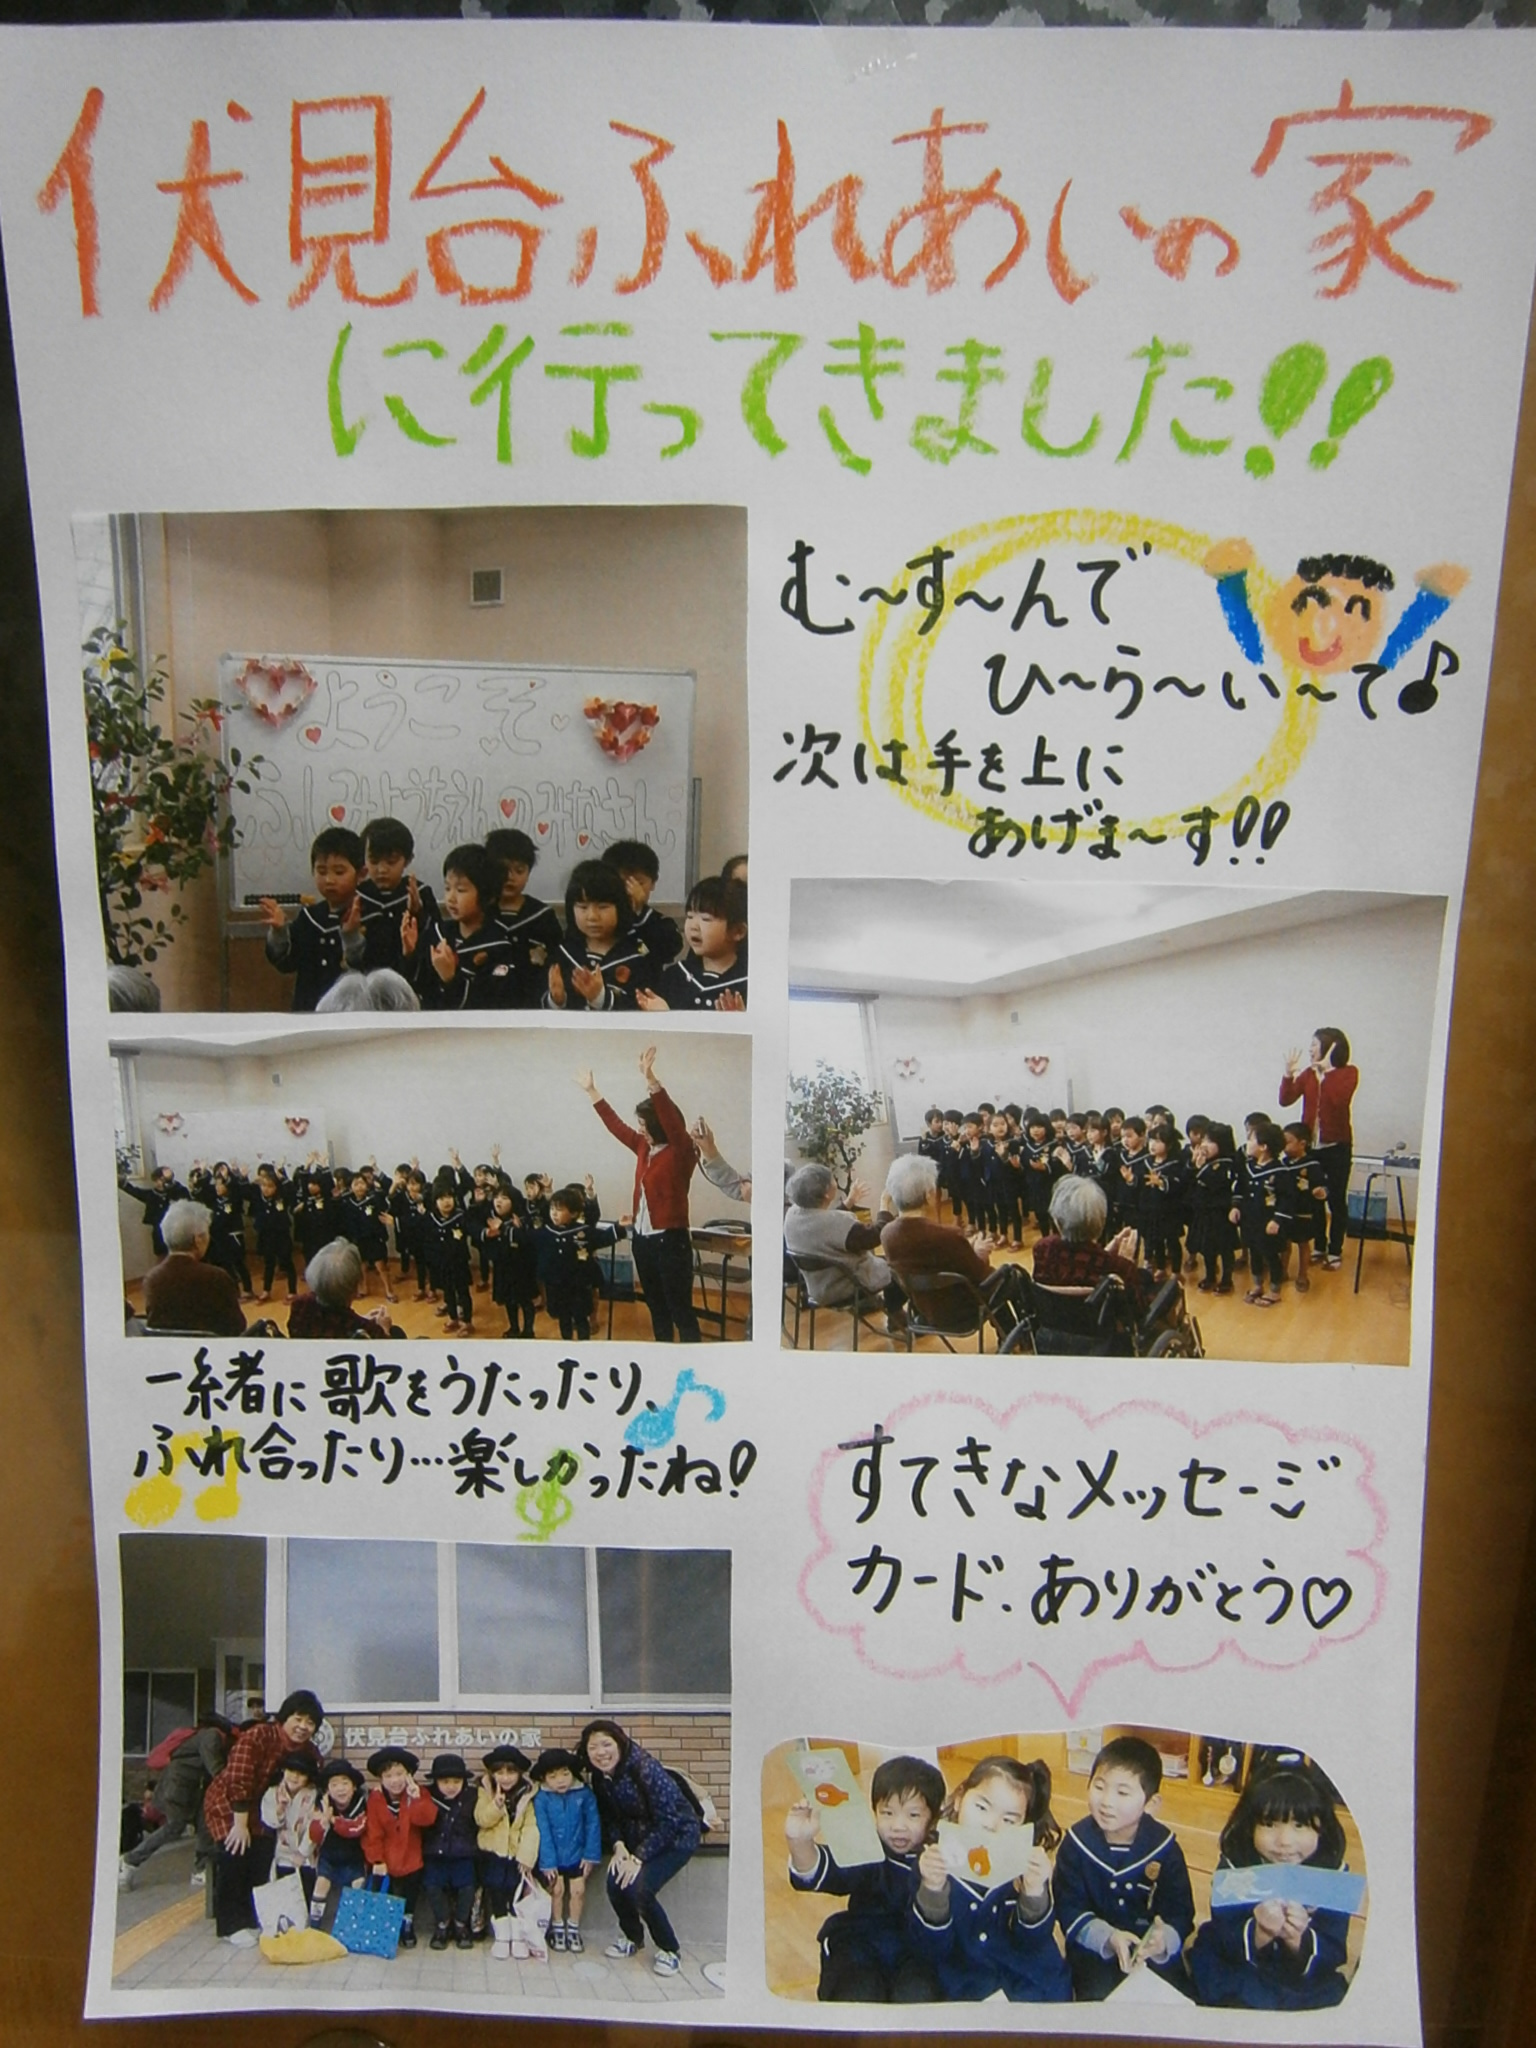 伏見台ふれあいの家
に行ってきました!!
む〜す〜んで
ひ〜ら〜い〜て♪
次は手を上に
あげま〜す!!
ようこそ
ふしみようちえんのみなさん
一緒に歌をうたったり、
ふれ合ったり…楽しかったね!
すてきなメッセージ
カード.ありがとう♡
伏見台ふれあいの家